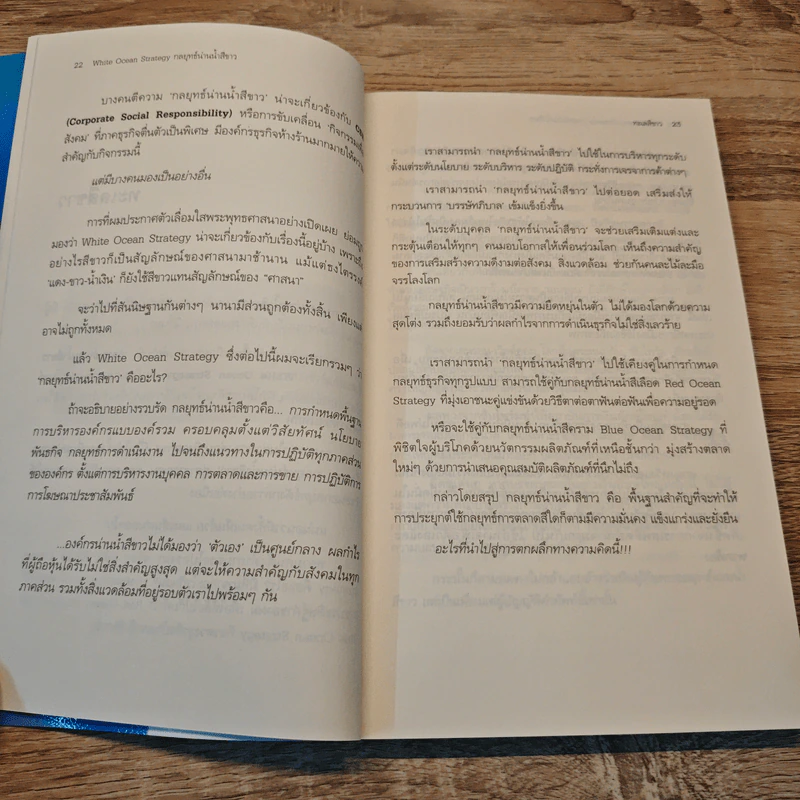 22 White Ocean Strategy กลยุทธ์น่านน้ำสีขาว
บางคนตีความ ‘กลยุทธ์น่านน้ำสีขาว’ น่าจะเกี่ยวข้องกับ
(Corporate Social Responsibility) หรือการขับเคลื่อน ‘กิจกรรม
สังคม’ ที่ภาคธุรกิจตื่นตัวเป็นพิเศษ มีองค์กรธุรกิจห้างร้านมากมายให้
สำคัญกับกิจกรรมนี้
แต่มีบางคนมองเป็นอย่างอื่น
การที่ผมประกาศตัวเลื่อมใสพระพุทธศาสนาอย่างเปิดเผย
มองว่า White Ocean Strategy น่าจะเกี่ยวข้องกับเรื่องนี้อยู่บ้าง
อย่างไรสีขาวก็เป็นสัญลักษณ์ของศาสนามาช้านาน แม้แต่ธงไตรรงค์
‘แดง-ขาว-น้ำเงิน’ ก็ยังใช้สีขาวแทนสัญลักษณ์ของ “ศาสนา”
จะว่าไปที่สันนิษฐานกันต่างๆ นานามีส่วนถูกต้องทั้งสิ้น เพียงแต่
อาจไม่ถูกทั้งหมด
แล้ว White Ocean Strategy ซึ่งต่อไปนี้ผมจะเรียกรวมๆ ว่า
‘กลยุทธ์น่านน้ำสีขาว’ คืออะไร?
ถ้าจะอธิบายอย่างรวบรัด กลยุทธ์น่านน้ำสีขาวคือ... การกำหนดพื้นฐาน
การบริหารองค์กรแบบองค์รวม ครอบคลุมตั้งแต่วิสัยทัศน์ นโยบาย
พันธกิจ กลยุทธ์การดำเนินงาน ไปจนถึงแนวทางในการปฏิบัติทุกภาคส่วน
ขององค์กร ตั้งแต่การบริหารงานบุคคล การตลาดและการขาย การปฏิบัติการ
การโฆษณาประชาสัมพันธ์
...องค์กรน่านน้ำสีขาวไม่ได้มองว่า ‘ตัวเอง’ เป็นศูนย์กลาง ผลกำไร
ที่ผู้ถือหุ้นได้รับไม่ใช่สิ่งสำคัญสูงสุด แต่จะให้ความสำคัญกับสังคมในทุก
ภาคส่วน รวมทั้งสิ่งแวดล้อมที่อยู่รอบตัวเราไปพร้อมๆ กัน
ทะเลสีขาว 23
เราสามารถนำ ‘กลยุทธ์น่านน้ำสีขาว’ ไปใช้ในการบริหารทุกระดับ
ตั้งแต่ระดับนโยบาย ระดับบริหาร ระดับปฏิบัติ กระทั่งการเจรจาการค้าต่างๆ
เราสามารถนำ ‘กลยุทธ์น่านน้ำสีขาว’ ไปต่อยอด เสริมส่งให้
กระบวนการ ‘บรรษัทภิบาล’ เข้มแข็งยิ่งขึ้น
ในระดับบุคคล ‘กลยุทธ์น่านน้ำสีขาว’ จะช่วยเสริมเติมแต่งและ
กระตุ้นเตือนให้ทุกๆ คนมอบโอกาสให้เพื่อนร่วมโลก เห็นถึงความสำคัญ
ของการเสริมสร้างความดีงามต่อสังคม สิ่งแวดล้อม ช่วยกันคนละไม้ละมือ
จรรโลงโลก
กลยุทธ์น่านน้ำสีขาวมีความยืดหยุ่นในตัว ไม่ได้มองโลกด้วยความ
สุดโต่ง รวมถึงยอมรับว่าผลกำไรจากการดำเนินธุรกิจไม่ใช่สิ่งเลวร้าย
เราสามารถนำ ‘กลยุทธ์น่านน้ำสีขาว’ ไปใช้เคียงคู่ในการกำหนด
กลยุทธ์ธุรกิจทุกรูปแบบ สามารถใช้คู่กับกลยุทธ์น่านน้ำสีเลือด Red Ocean
Strategy ที่มุ่งเอาชนะคู่แข่งขันด้วยวิธีตาต่อตาฟันต่อฟันเพื่อความอยู่รอด
หรือจะใช้คู่กับกลยุทธ์น่านน้ำสีคราม Blue Ocean Strategy ที่
พิชิตใจผู้บริโภคด้วยนวัตกรรมผลิตภัณฑ์ที่เหนือชั้นกว่า มุ่งสร้างตลาด
ใหม่ๆ ด้วยการนำเสนอคุณสมบัติผลิตภัณฑ์ที่นึกไม่ถึง
กล่าวโดยสรุป กลยุทธ์น่านน้ำสีขาว คือ พื้นฐานสำคัญที่จะทำให้
การประยุกต์ใช้กลยุทธ์การตลาดสีใดก็ตามมีความมั่นคง แข็งแกร่งและยั่งยืน
อะไรที่นำไปสู่การตกผลึกทางความคิดนี้!!!